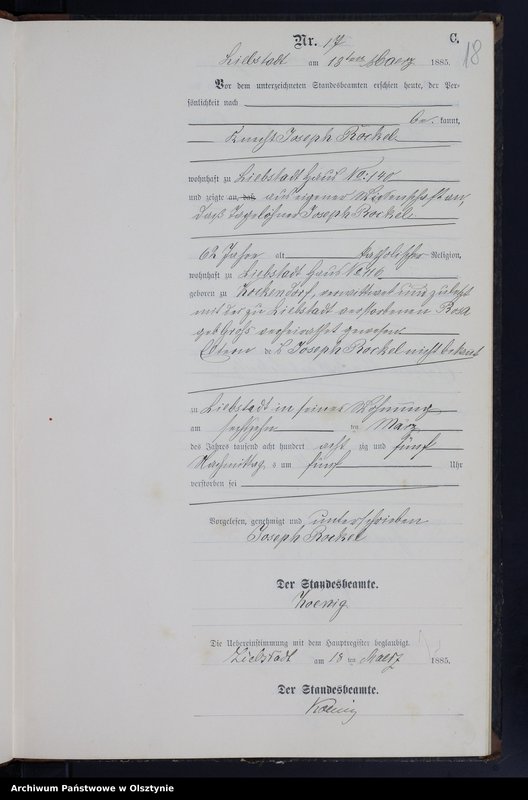 Nr. 17
C.
18
Liebstadt am 18ten Maerz 1885.
Vor dem unterzeichneten Standesbeamten erschien heute, der Per-
sönlichkeit nach
be kannt,
Knecht Joseph Rockel
wohnhaft zu Liebstadt Haus No: 140
und zeigte an, daß aus eigener Wissenschaft an,
daß Tagelöhner Joseph Rockel
62 Jahre alt katholischer Religion,
wohnhaft zu Liebstadt Haus No
geboren zu verwittwet und zuletzt
mit der zu Liebstadt verstorbenen Rosa
geb verheirathet gewesen
Eltern Joseph Rockel nicht bekannt
zu Liebstadt in seiner Wohnung
am sechzehn ten März
des Jahres tausend acht hundert acht zig und fünf
Nachmittag s um fünf Uhr
verstorben sei
Vorgelesen, genehmigt und unterschrieben
Joseph Rockel
Der Standesbeamte.
Koenig
Die Uebereinstimmung mit dem Hauptregister beglaubigt.
Liebstadt am 18 ten Maerz 1885.
Der Standesbeamte.
Koenig
Archiwum Państwowe w Olsztynie